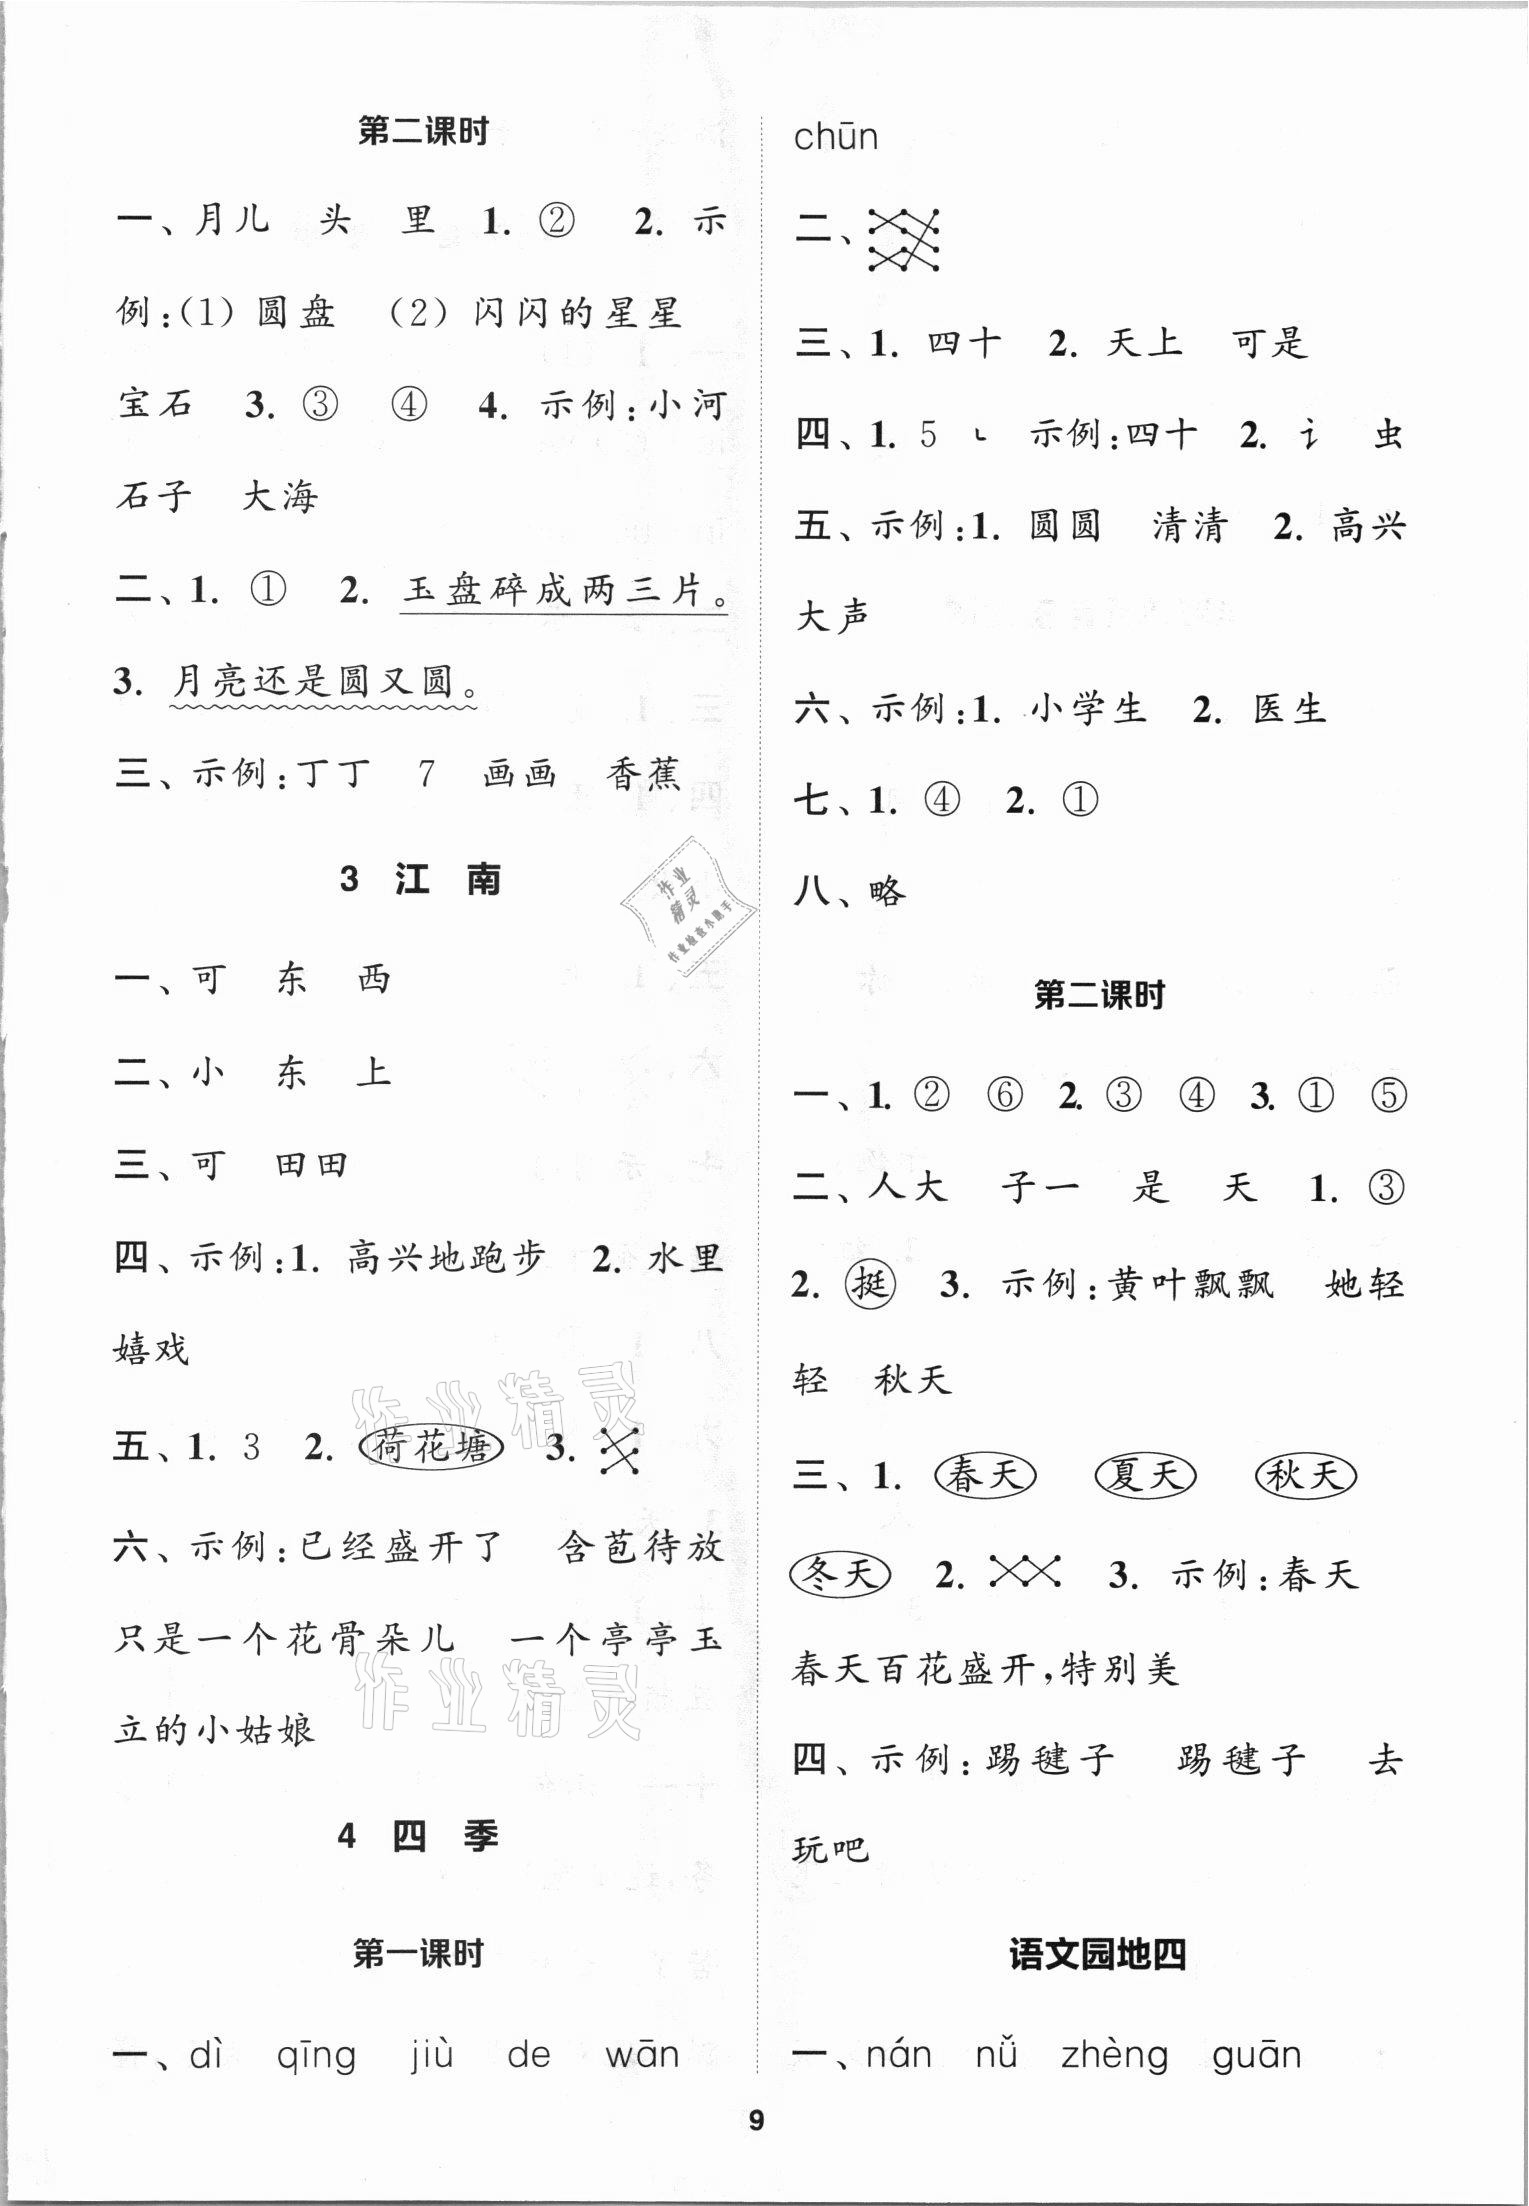 第二课时
一、月儿 头 里 1. ② 2. 示
例:(1)圆盘 (2)闪闪的星星
宝石 3. ③ ④ 4. 示例:小河
石子 大海
二、1. ① 2. 玉盘碎成两三片。
3. 月亮还是圆又圆。
三、示例:丁丁 7 画画 香蕉
3 江 南
一、可 东 西
二、小 东 上
三、可 田田
四、示例:1. 高兴地跑步 2. 水里
嬉戏
五、1. 3 2. 荷花塘 3.
六、示例:已经盛开了 含苞待放
只是一个花骨朵儿 一个亭亭玉
立的小姑娘
4 四 季
第一课时
一、dì qīng jiù de wān
chūn
二、
三、1. 四十 2. 天上 可是
四、1. 5 ㇃ 示例:四十 2. 讠 虫
五、示例:1. 圆圆 清清 2. 高兴
大声
六、示例:1. 小学生 2. 医生
七、1. ④ 2. ①
八、略
第二课时
一、1. ② ⑥ 2. ③ ④ 3. ① ⑤
二、人大 子一 是 天 1. ③
2. 挺 3. 示例:黄叶飘飘 她轻
轻 秋天
三、1. 春天 夏天 秋天
冬天 2. 3. 示例:春天
春天百花盛开,特别美
四、示例:踢毽子 踢毽子 去
玩吧
语文园地四
一、nán nǚ zhèng guān
9
作业
精灵
作业检查小助手
作业精灵
作业精灵